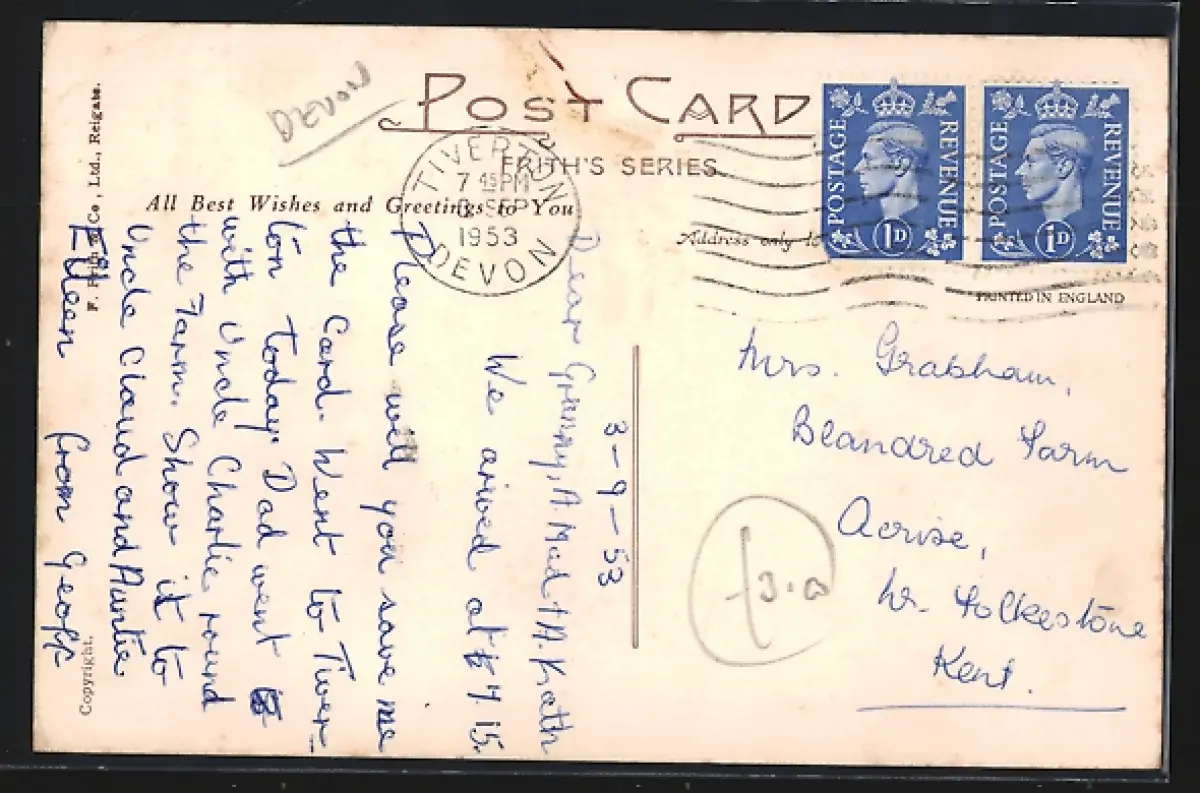 DEVON
POST CARD
FRITH'S SERIES.
TIVERTON
7 45 PM
3 SEP
1953
DEVON
All Best Wishes and Greetings to You
Address only to
POSTAGE REVENUE
1D
POSTAGE REVENUE
1D
PRINTED IN ENGLAND
3-9-53
Dear Granny, A. Mad + A. Kath
We arived at 7.15.
Please will you save me
the Card. Went to Tiver-
ton today. Dad went
with Uncle Charlie round
the Farm. Show it to
Uncle Claud and Auntie
Eileen from Geoff
Mrs. Grabham,
Blandred Farm
Acrise,
Nr. Folkestone
Kent.
F. Frith & Co., Ltd., Reigate.
Copyright.